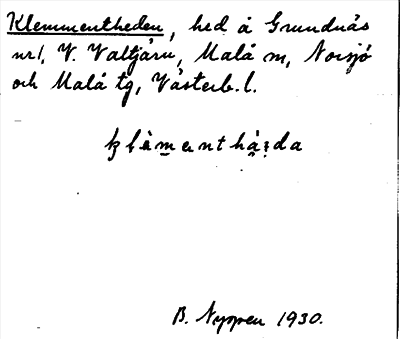 Klemmentheden, hed å Grundnäs
nr 1, V. Valtjärn, Malå sn, Norsjö
och Malå tg, Västerb. l.
B. Nygren 1930.